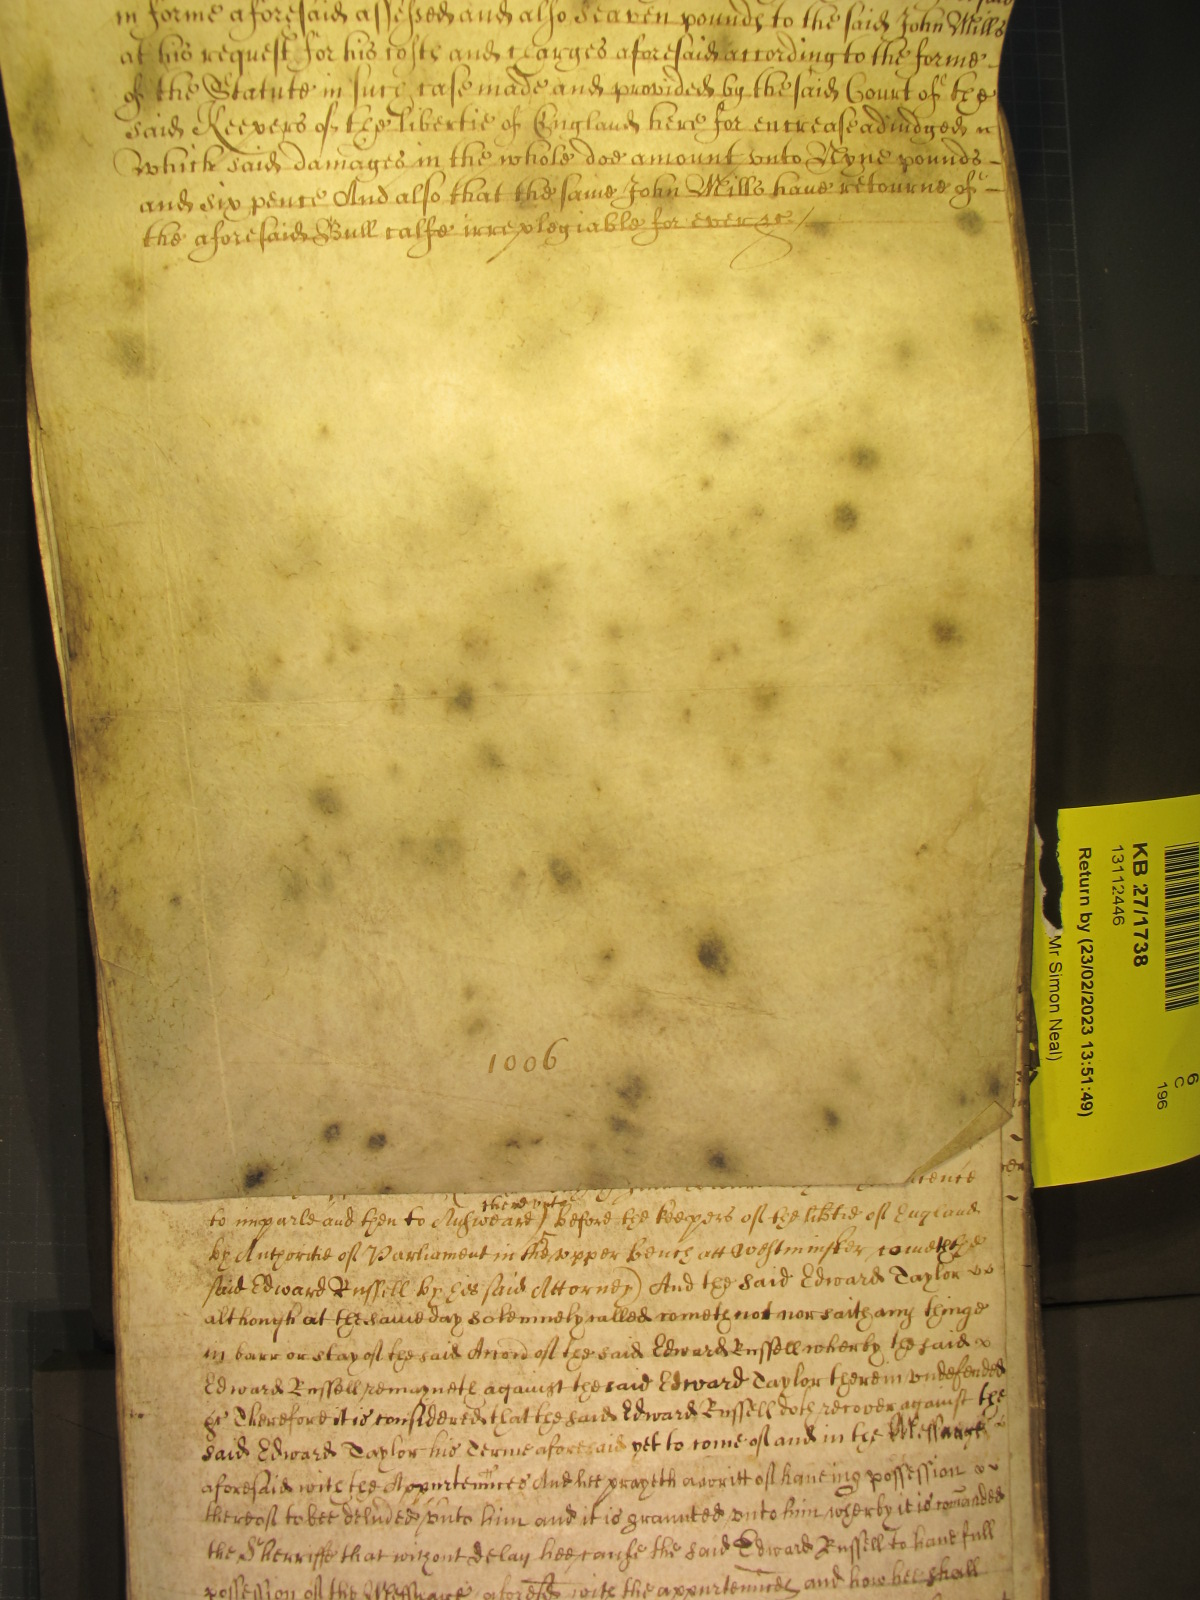 in forme aforesaid assessed and also Seaven pounds to the said John Mills
at his request for his costs and charges aforesaid according to the forme
of the Statute in such case made and provided by the said Court of the
said Keepers of the libertie of England here for encrease adiudged
Which said damages in the whole doe amount vnto Nyne pounds
and six pence And also that the same John Mills have retourne of
the aforesaid Bull calfe irreplegiable for ever &c
1006
thervnto
to imparle and then to Answeare before the Keepers of the libtie of England
by Authoritie of Parliament in the vpper bench att Westminster cometh the
said Edward Russell by his said Attorney And the said Edward Taylor
although at the same day solemnely called cometh not nor saith any thinge
in barr or stay of the said Accord of the said Edward Russell wherby the said
Edward Russell remayneth against the said Edward Taylor therein vndefended
&c Therefore it is considered that the said Edward Russell doth recover against the
said Edward Taylor his Terme aforesaid yet to come of and in the Messuage
aforesaid with the Appurtennces And hee prayeth a writt of haveing possession
thereof to bee deluded vnto him and it is graunted vnto him wherby it is comanded
the Sherriffe that without delay hee cause the said Edward Russell to have full
possession of the Messuage aforesd with the appurtennces and how hee shall
KB 27/1738
13112446
Return by (23/02/2023 13:51:49)
Mr Simon Neal)
6
C
196